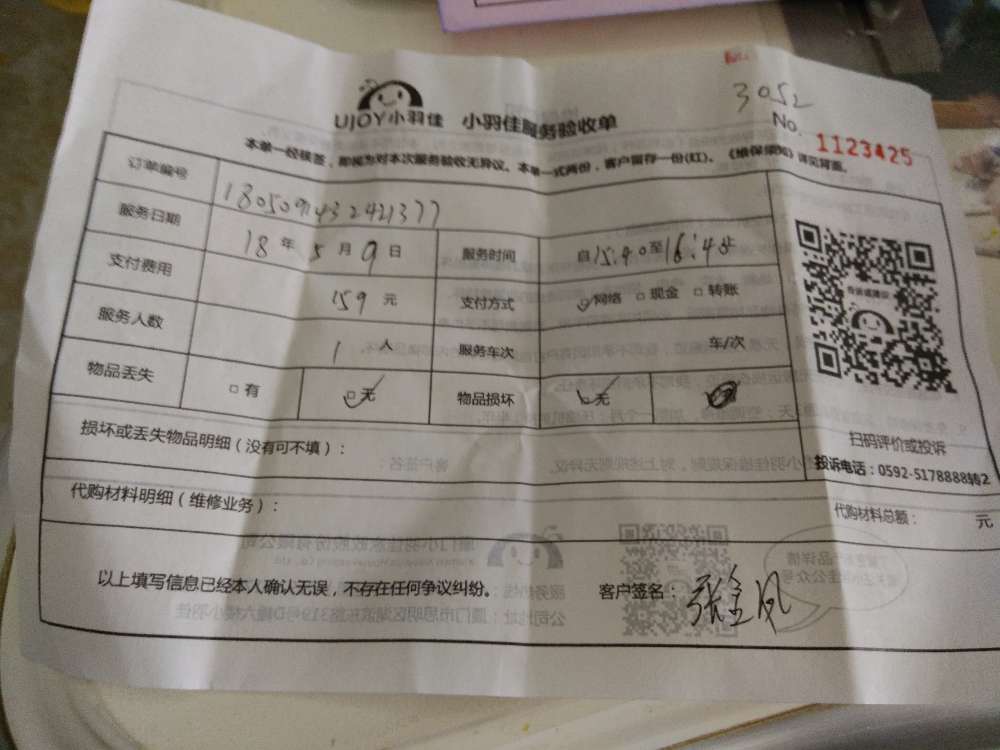 3052
UJOY小羽佳 小羽佳服务验收单
No. 1123425
本单一经核签，即视为对本次服务验收无异议。本单一式两份，客户留存一份(红)。《维保须知》详见背面。
订单编号 1805091432421377
服务日期 18 年 5 月 9 日 服务时间 自15:40至16:48
支付费用 159 元 支付方式 网络 □ 现金 □ 转账
服务人数 1 人 服务车次 车/次
物品丢失 □ 有 □ 无 物品损坏 □ 无
损坏或丢失物品明细（没有可不填）：
扫码评价或投诉
投诉电话：0592-5178888
代购材料明细（维修业务）：
代购材料总额： 元
以上填写信息已经本人确认无误，不存在任何争议纠纷。 客户签名：张金凤